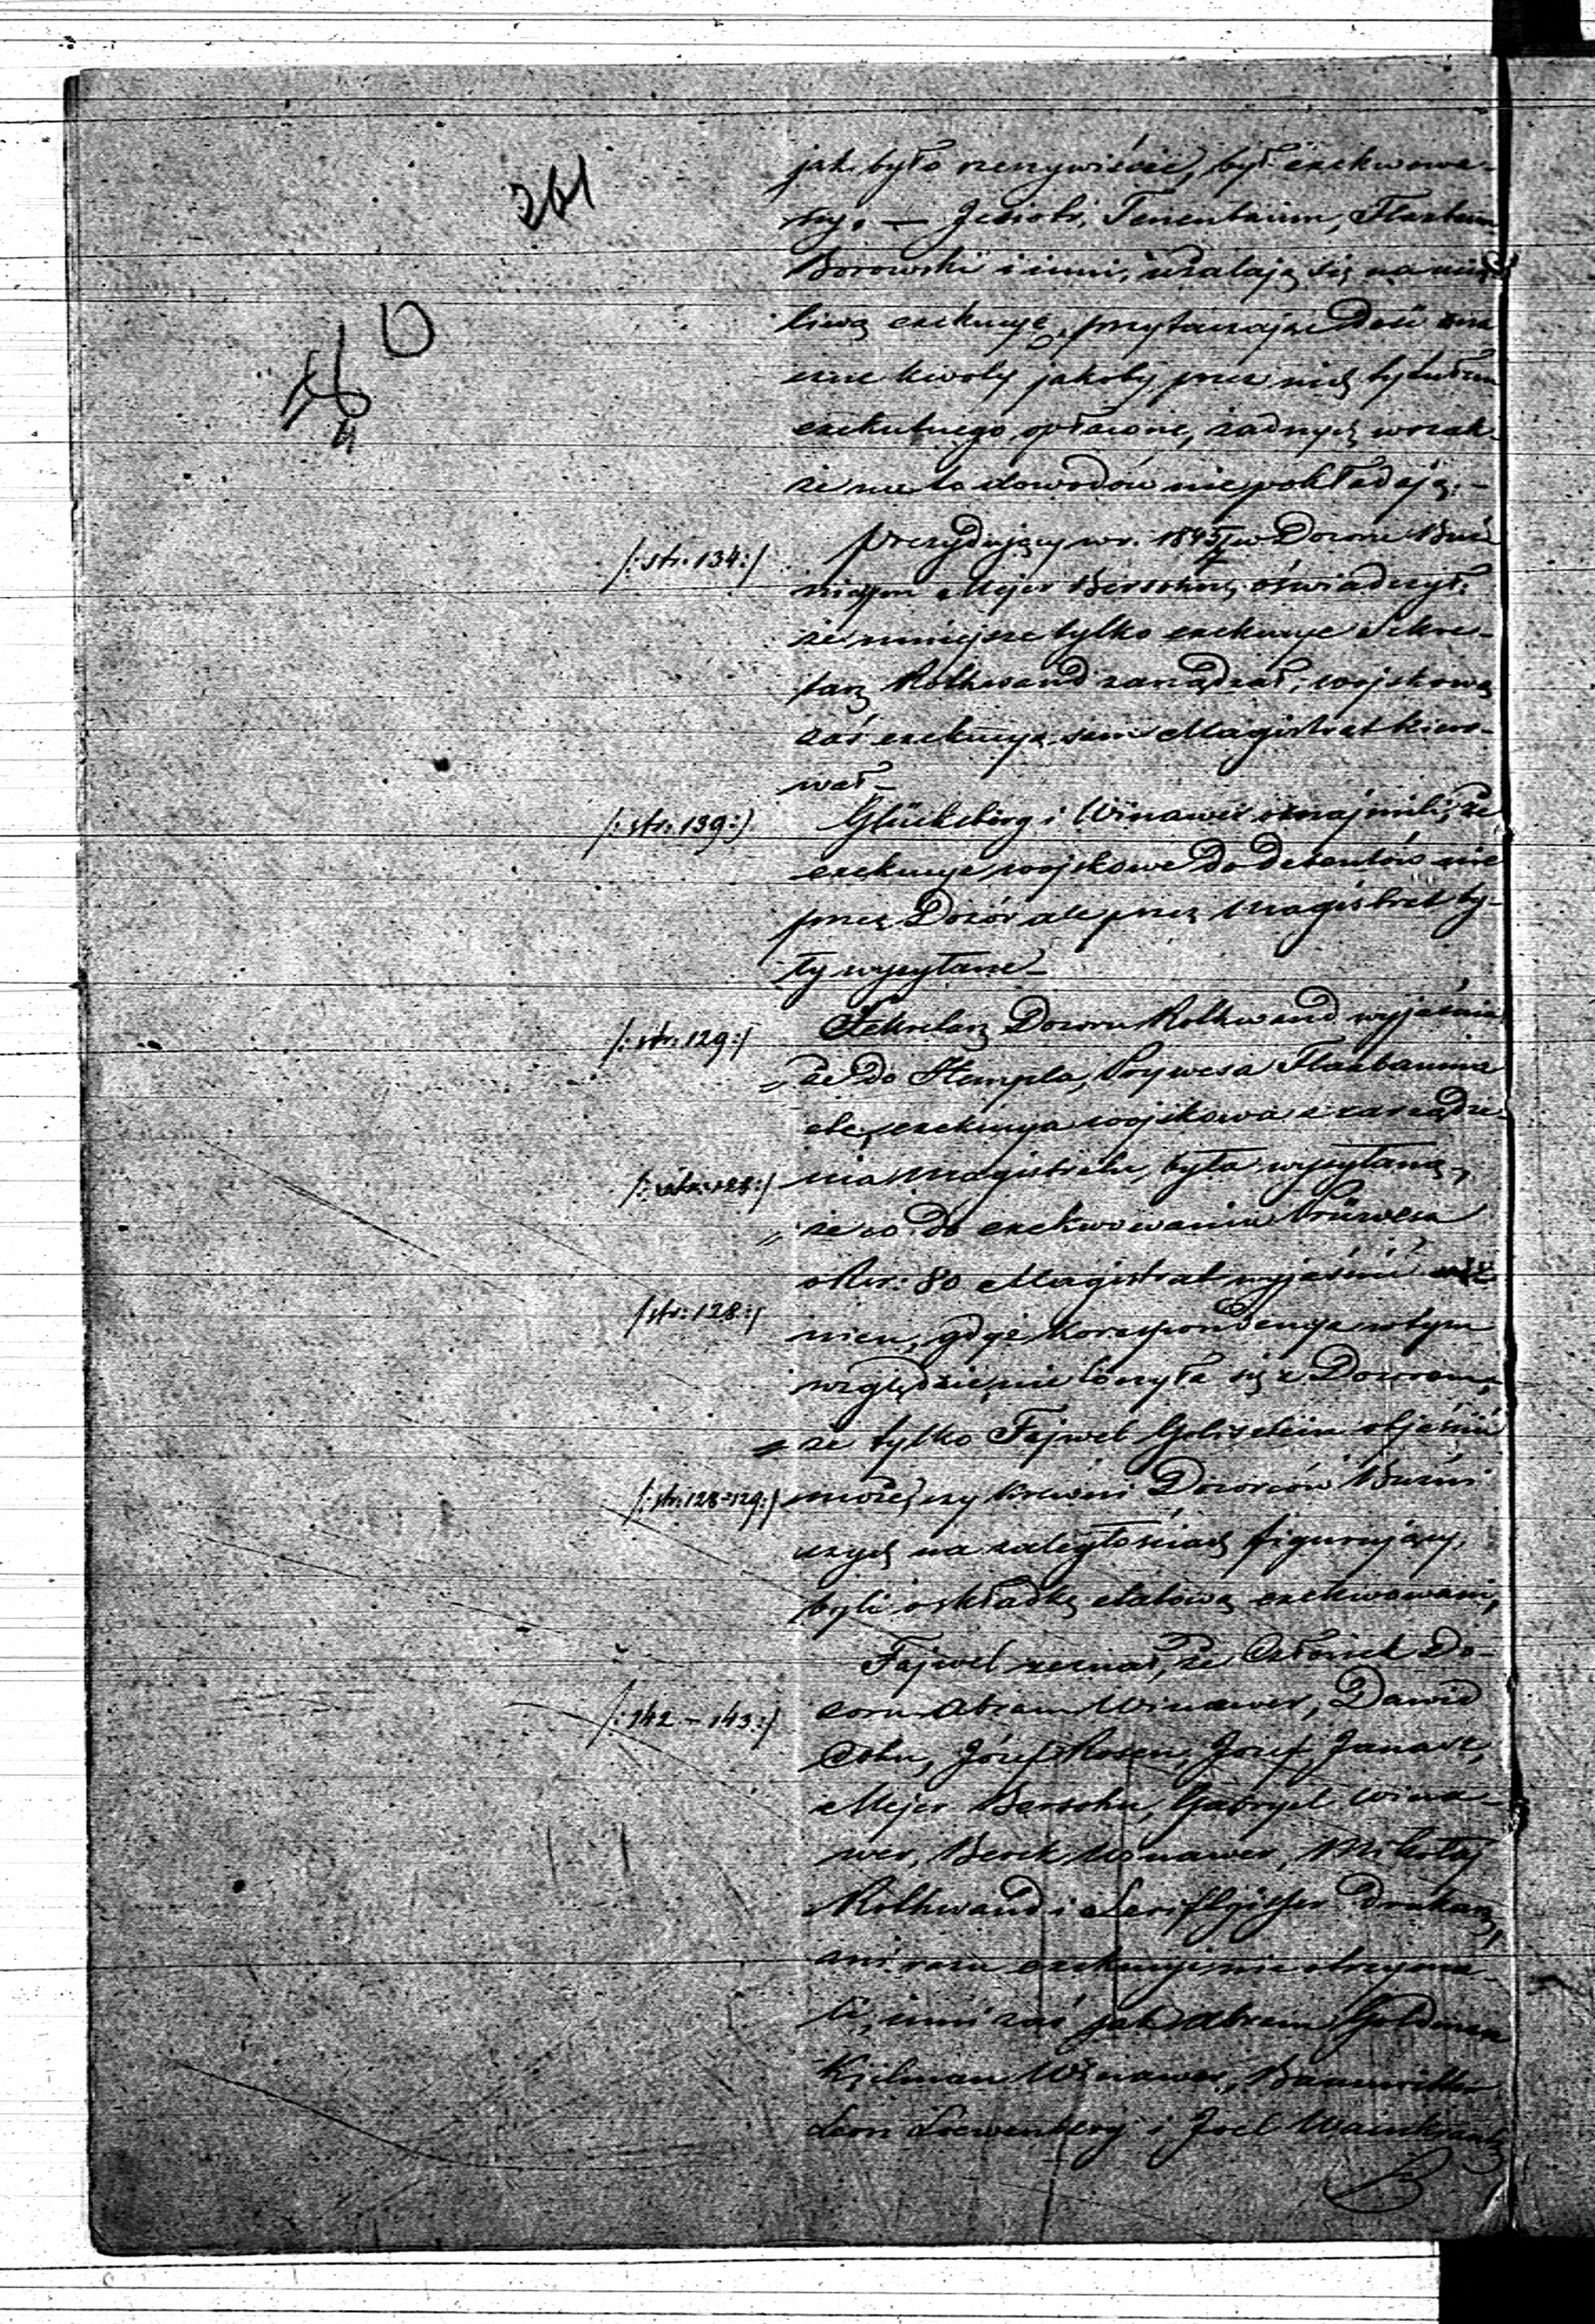 261
jak było rzeczywiście, był exekwowa-
ny. — Jeziobr, Tenenbaum, Flaxbaum
Borowski i inni, użalają się na uciąż
liwą exekucyę, przytaczając dość zna
czne kwoty jakoby przez nich tytułem
exekutnego opłacone, żadnych wszak-
że na to dowodów nie pokładają. —
/: str. 134:/ Prezydujący w r. 1845/7 w Dozorze Bóż
niczym Mejer Bersohn, oświadczył:
że mniejsze tylko exekucye Sekre-
tarz Rothwand zarządzał, wojskową
zaś exekucyą sam Magistrat kiero-
wał —
/: str. 139:/ Glücksberg i Winawer oznajmili, że
exekucye wojskowe do debentów nie
przez Dozór ale przez Magistrat by-
ły wysyłane —
/: str. 129:/ Sekretarz Dozoru Rothwand wyjaśnia
„ że do Stempla, Prywesa Flaxbauma
etc, exekucya wojskowa z zarządze-
nia Magistratu, była wysyłaną,
„ że co do exekwowania Prüwesa
o Rsr: 80 Magistrat wyjaśnić
/str: 128:/ winien, gdyż korespondencya w tym
względzie, nie łączyła się z Dozorem,
„ że tylko Fajwel Golsztein objaśnić
/: str. 128-129:/ może, czy krewni Dozorców Bóżni
czych na zaległościach figurujący,
byli o składkę etatową exekwowani,
Fajwel zeznał, że Członek Do-
/: 142 – 143:/ zoru Abram Winawer, Dawid
Cohn, Józef Rosen, Józef Janasz,
Mejer Bersohn, Gabryel Wina-
wer, Berek Winawer, Mikołaj
Rothwand i Drukarz,
ani razu exekucyi nie otrzyma-
li, inni zaś jak Abram Goldman
Kielman Winawer,
Leon Loewenberg i Joel